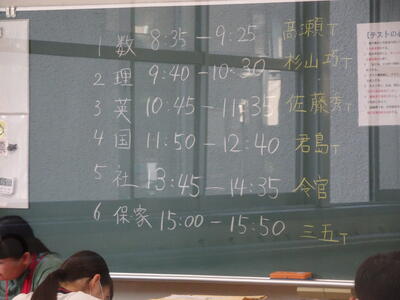 1 数 8:35 － 9:25 高瀬T
2 理 9:40 － 10:30 杉山巧T
3 英 10:45 － 11:35 佐藤秀T
4 国 11:50 － 12:40 君島T
5 社 13:45 － 14:35 令官
6 保家 15:00 － 15:50 三五T
【テストの心